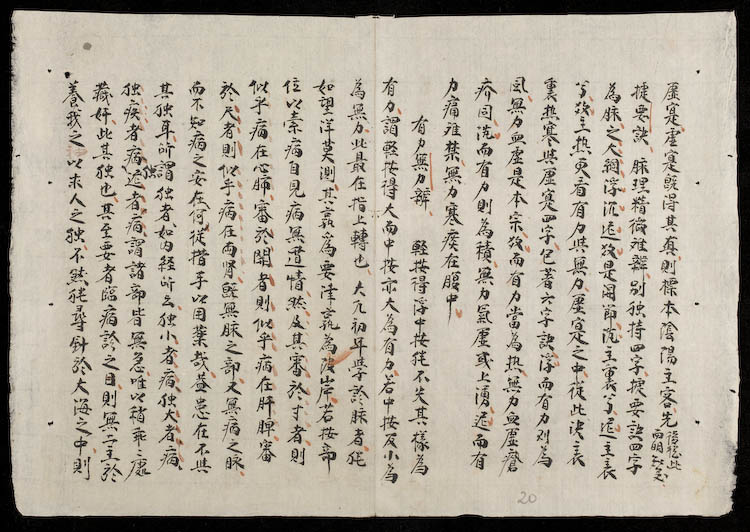 虛寔虛寔既得其真則標本陰陽主客先後從此而明矣
捷要訣 脉理精微难辨別独持四字捷要訣四字
為脉之大綱浮沉遲数是関節沉主裏兮遲主表
兮数主热更看有力與無力虛寔之中從此决表
裏热寒與虛寔四字包著六字訣浮而有力则為
風無力血虛是本宗数而有力當為热無力血虛瘡
疥同沉而有力則為積無力氣虛或上湧遲而有
力痛难禁無力寒痰在腹中
有力無力辨 輕按得浮中按徃不失其樣為
有力謂輕按得大而中按亦大為有力若中按及小為
為無力此最在指上轉也 大凡初年學診脉者徃
如望洋莫测其孰為要津孰為彼岸若按部
位以素病自見病無遁情然及其審於寸者則
似乎病在心肺審於関者則似乎病在肝脾審
於尺者則似乎病在両肾既無脉之部又無病之脉
而不知病之安在何從措手以用藥哉蓋患在不共
其独耳所謂独者如内経所云独小者病独大者病
独疾者病独遲者病謂諸部皆無急唯以稍乖之處
藏奸此其独也其至要者臨病診之目則無二主於
養我之以求人之独不然徃尋針於大海之中則
20